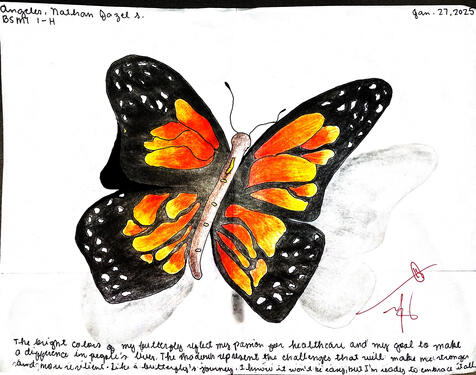 Angeles, Nathan Dazel S.
BSMT 1-H
Jan. 27, 2025
The bright colors of my butterfly reflect my passion for healthcare and my goal to make
a difference in people's lives. The shadows represent the challenges that will make me stronger
and more resilient. Like a butterfly's journey, I know it won't be easy, but I'm ready to embrace it all.